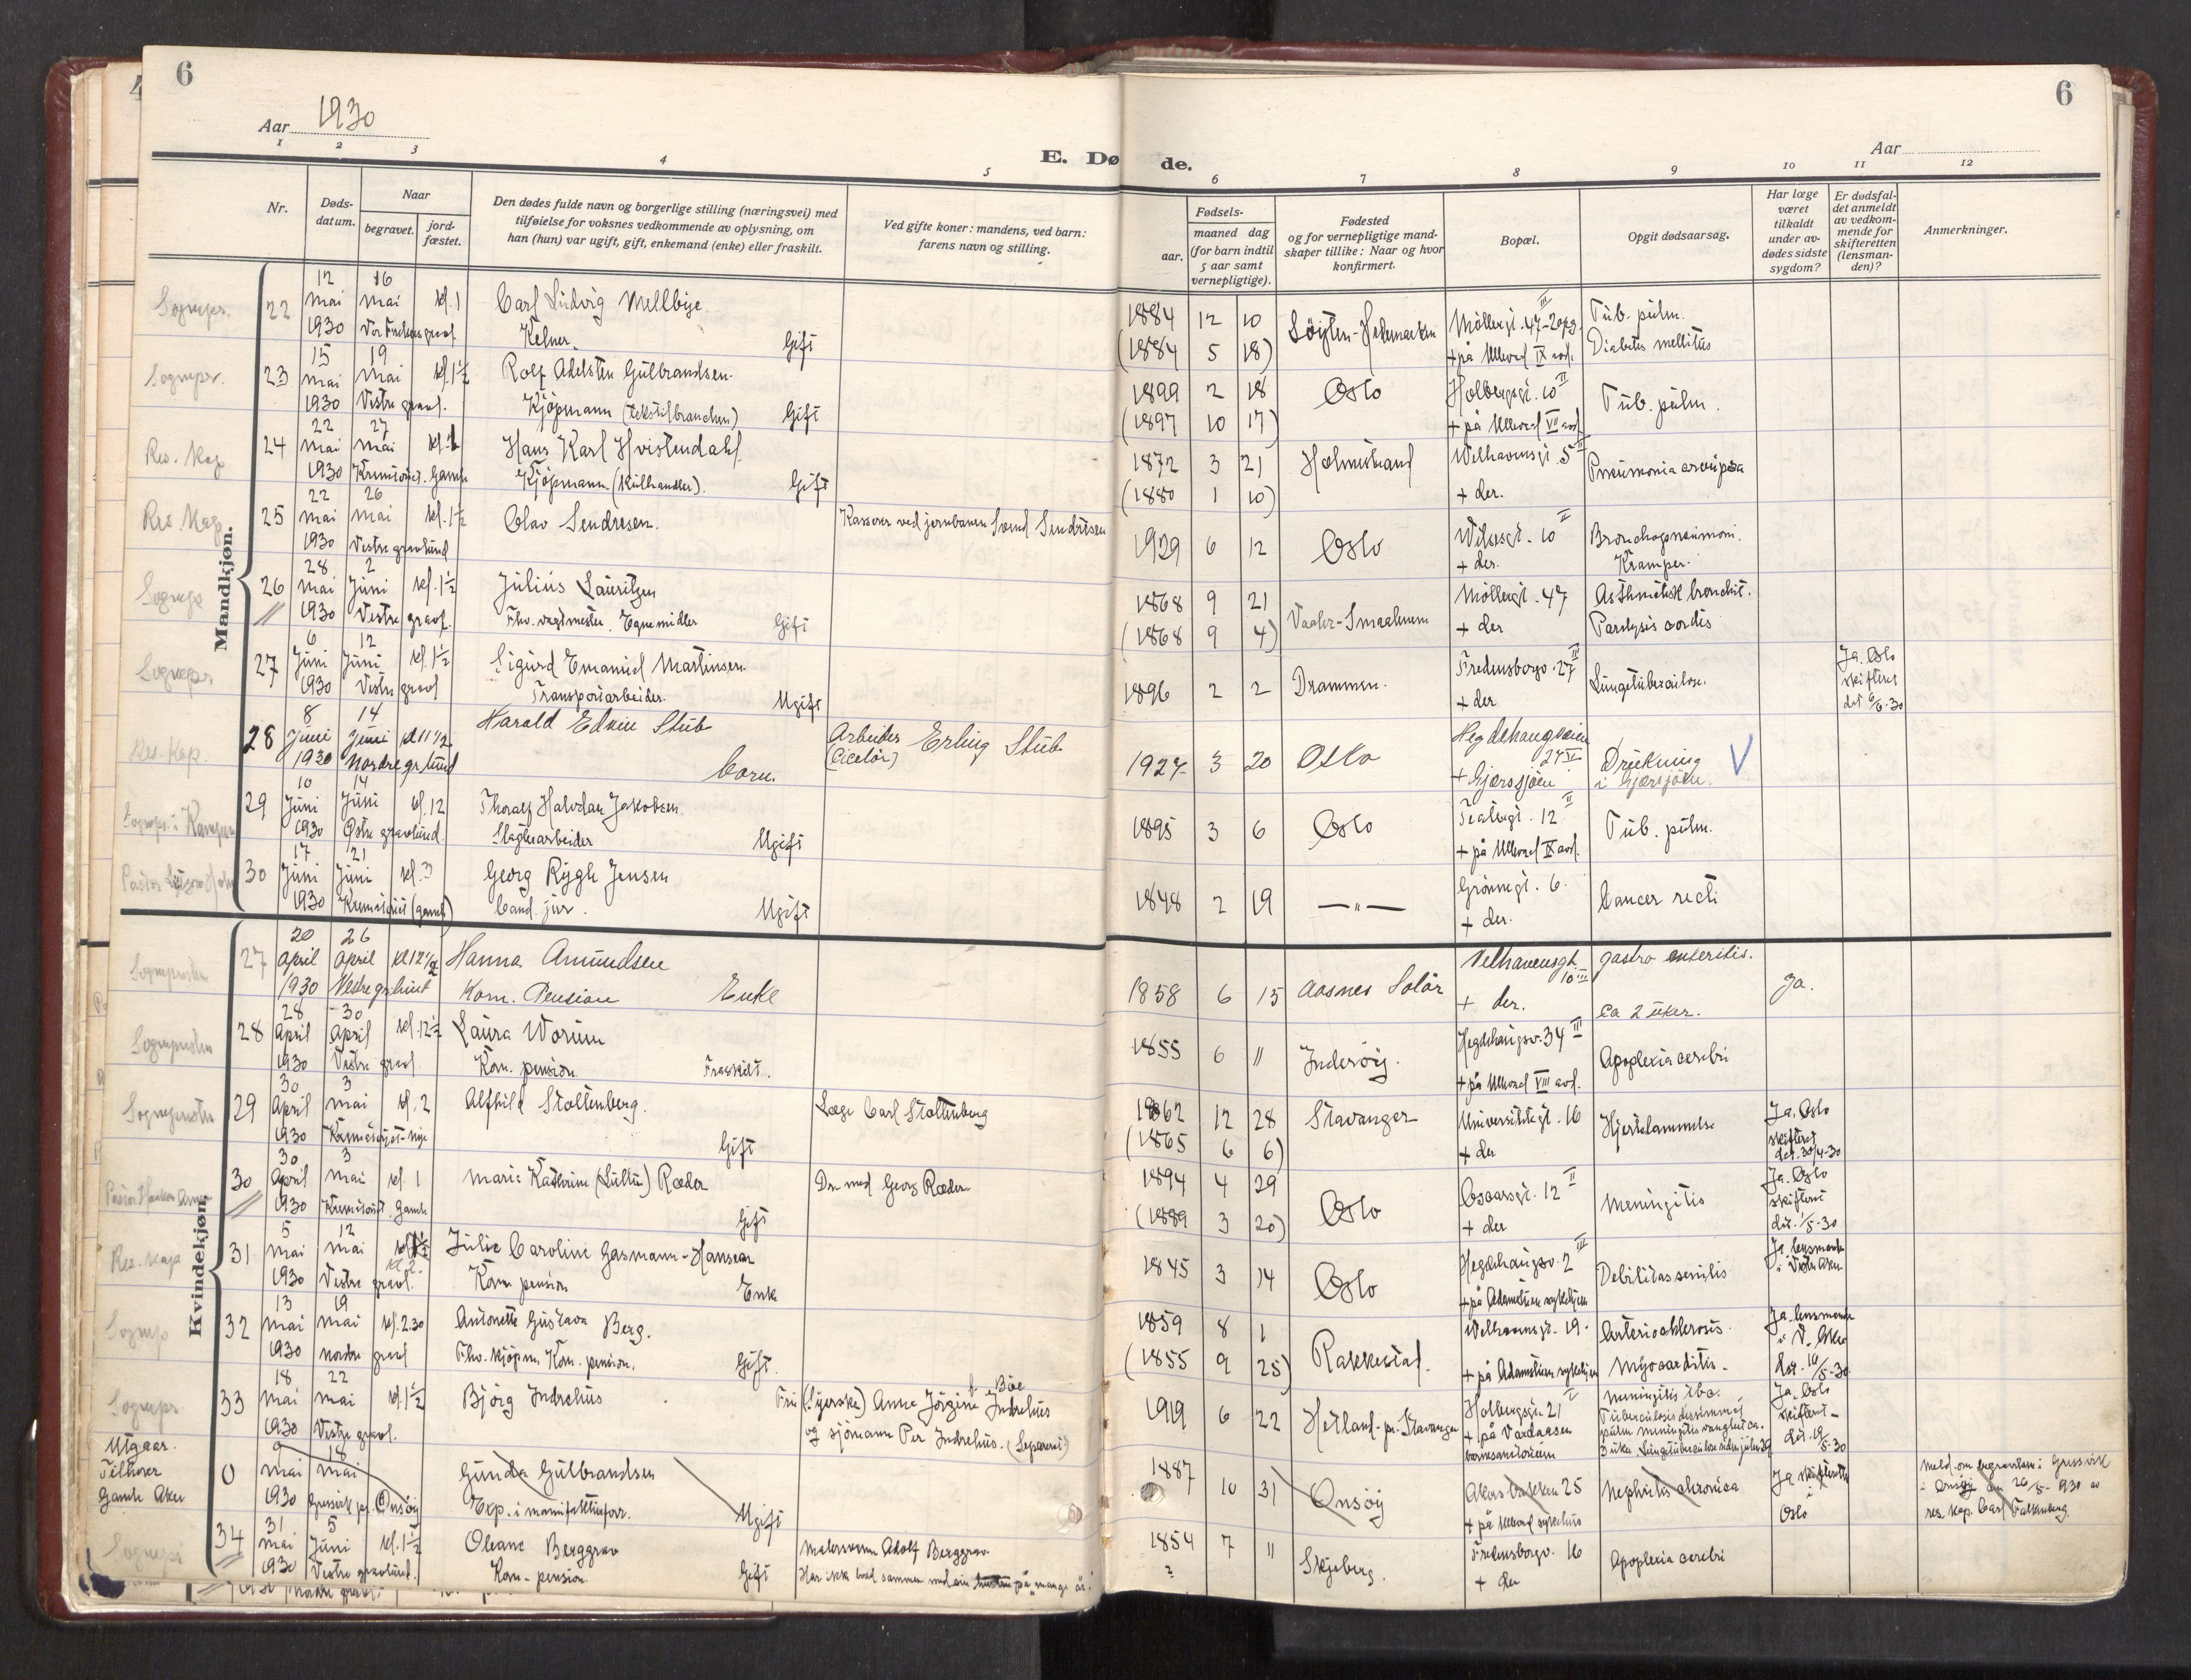 6
6
Aar 1930
Aar
E. Dø de.
1 2 3 4 5 6 7 8 9 10 11 12
Nr.
Døds-
datum.
Naar
begravet.
jord-
fæstet.
Den dødes fulde navn og borgerlige stilling (næringsvei) med
tilføielse for voksnes vedkommende av oplysning, om
han (hun) var ugift, gift, enkemand (enke) eller fraskilt.
Ved gifte koner: mandens, ved barn:
farens navn og stilling.
Fødsels-
aar.
maaned dag
(for barn indtil
5 aar samt
vernepligtige).
Fødested
og for vernepligtige mand-
skaper tillike: Naar og hvor
konfirmert.
Bopæl.
Opgit dødsaarsag.
Har læge
været
tilkaldt
under av-
dødes sidste
sygdom?
Er dødsfal-
det anmeldt
av vedkom-
mende for
skifteretten
(lensman-
den)?
Anmerkninger.
Mandkjøn.
Sognepr. 22 12 mai 1930 16 mai Vor Frelsers gravl. kl. 1
Carl Ludvig Mellbye
Kelner. Gift
1884 12 10
(1884 5 18)
Löiten-Hedemarken
Möllergt. 47-2opg. III
+ på Ullevaal IX avd.
Tub. pulm.
Diabetes mellitus
Sognepr. 23 15 mai 1930 19 mai Vestre gravl. kl. 1½
Rolf Adelsten Gulbrandsen
Kjöpmann (tekstilbranchen) Gift
1899 2 18
(1897 10 17)
Oslo
Holbergsgt. 10 II
+ på Ullevaal VII avd.
Tub. pulm.
Res. Kap 24 22 mai 1930 27 mai Krematoriet. Gamle kl. 1
Hans Karl Hvistendahl
Kjöpmann (Kulhandler). Gift
1872 3 21
(1880 1 10)
Holmestrand
Welhavensgt. 5 II
+ der.
Pneumonia crouposa
Res. Kap 25 22 mai 1930 26 mai Vestre gravlund kl. 1½
Olav Sendresen.
Kasserer ved jernbanen Svend Sendresen
1929 6 12
Oslo
Wilsesgt. 10 II
+ der.
Bronchopneumoni.
Kramper.
Sognepr 26 28 mai 1930 2 Juni Vestre gravl. kl. 1½
Julius Lauritzen
Fhv. vagtmester. Egne midler Gift
1868 9 21
(1868 9 4)
Vaaler-Smaalenene
Möllergt. 47
+ der
Asthmatisk bronchit.
Paralysis cordis
Sognepr 27 6 Juni 1930 12 Juni Vestre gravl kl. 1½
Sigurd Emanuel Martinsen
Transportarbeider. Ugift
1896 2 2
Drammen.
Fredensborgv. 27 III
+ der
Lungetuberculose.
Ja. Oslo
skifteret
det 6/6-30
Res. Kap. 28 8 Juni 1930 14 Juni Nordre gr.lund kl 11½
Harald Edvin Stub
barn.
Arbeider Erling Stub
(Ciselör)
1927 3 20
Oslo
Hegdehaugveien
27 IV
+ Gjersjöen
Drukning
i Gjersjöen. V
Sognepr. i Kampen 29 10 Juni 1930 14 Juni Østre gravlund. kl. 12
Thoralf Halvdan Jakobsen
Slagteriarbeider Ugift
1895 3 6
Oslo
+ på Ullevaal IX avd.
Tub. pulm.
30 17 Juni 1930 21 Juni Krematoriet (gamle) kl. 3
Georg Rygh Jensen
Cand. jur. Ugift
1848 2 19
—"—
Grönnegt. 6.
+ der.
Cancer recti
Kvindekjøn.
Sognepresten 27 20 April 1930 26 April Vestre gr.lund kl 12½
Hanna Amundsen
Kom. Pension Enke
1858 6 15
Aasnes Solör
Velhavensgt.
10 III
+ der.
Gastro enteritis.
Ca 2 uker.
Ja.
Sognepresten 28 28 April 1930 30 April Vestre gravl. kl. 12½
Laura Worum
Kom. pension Fraskilt.
1855 6 "
Inderöy.
Hegdehaugsv. 34 III
+ på Ullevaal VIII avd.
Apoplexia cerebri
Sognepresten 29 30 April 1930 3 mai Krematoriet-nye kl. 2
Alfhild Stoltenberg.
Gift
Læge Carl Stoltenberg
1862 12 28
(1865 6 6)
Stavanger
Universitetsgt. 16
+ der
Hjertelammelse
Ja. Oslo
skifteret
det. 30/4-30
30 30 April 1930 3 mai Krematoriet. Gamle kl. 1
Marie Kathrine (Lullu) Ræder
Gift
Dr. med Georg Ræder
1894 4 29
(1889 3 20)
Oslo
Oscarsgt. 12 II
+ der
Meningitis
Ja. Oslo
skifteret
det. 1/5-30
Res. Kap 31 5 mai 1930 12 mai Vestre gravl. kl 2.
Julie Caroline Gasmann-Hansen
Kom. pension Enke
1845 3 14
Oslo
Hegdehaugsv. 2 III
+ på Adamstuen sykehjem
Debilitas senilis
Ja. lensmanden
i Vestre Aker
Sognepr 32 13 mai 1930 19 mai Nordre gravl kl. 2.30
Antonette Gustava Berg.
Fhv. kjöpm. Kom. pension. Gift.
1859 8 1
(1855 9 25)
Rakkestad.
Welhavensgt. 19.
+ på Adamstuen sykehjem
Arteriosklerosis.
Myocarditis.
Ja. lensmanden
i V. Aker
det. 16/5-30
Sognepr. 33 18 mai 1930 22 mai Vestre gravl. kl. 1½
Björg Indrehus
Fru (Syerske) Anne Jörgine Indrehus f. Böe
og sjömann Per Indrehus. (Separert)
1919 6 22
Hetland-pr. Stavanger
Holbergsgt. 21 II
+ på Vardaasen
barnesanatorium
Meningitis tbc.
3 uker. Lungetuberculose siden julen 29
Ja. Oslo
skifteret-
det. 19/5-30
Utgaar.
Tilhører
Gamle Aker
0 9 mai 1930 18 mai Gressvik pr Onsöy
Gunda Gulbrandsen
Exp. i manufakturforr. Ugift
1887 10 31
Onsöy
Akersbakken 25
+ på Ullevaal sykehus
Nephritis chronica
Ja skifteretten
i
Oslo
Meld. om begravelsen i Gressvik
i Onsöy den 26/5-930 av
res. kap. Carl Falkenberg.
Sognepr 34 31 mai 1930 5 Juni Vestre gravlund. kl. 1½
Oleane Berggrav
Kom. pension. Gift
Malersvenn Adolf Berggrav.
Har ikke bodd sammen med sin hustru på mange år.
1854 7 "
?
Skjeberg.
Fredensborgv. 16
+ der
Apoplexia cerebri